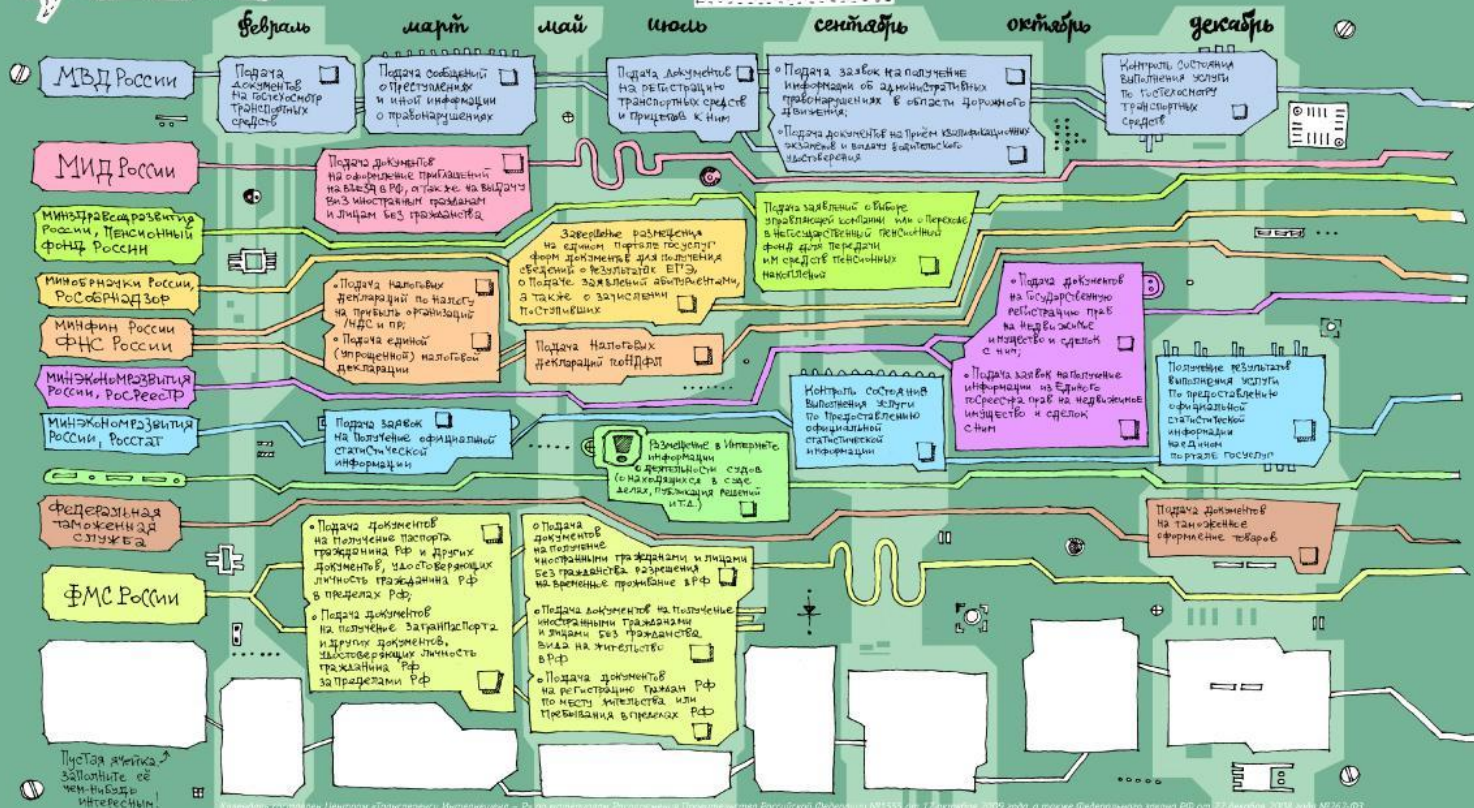 февраль март май июль сентябрь октябрь декабрь
МВД России
Подача
документов
на гостехосмотр
транспортных
средств
Подача сообщений
о преступлениях
и иной информации
о правонарушениях
Подача документов
на регистрацию
транспортных средств
и прицепов к ним
• Подача заявок на получение
информации об административных
правонарушениях в области дорожного
движения;
• Подача документов на приём квалификационных
экзаменов и выдачу водительского
удостоверения
Контроль состояния
выполнения услуги
по гостехосмотру
транспортных
средств
МИД России
Подача документов
на оформление приглашений
на въезд в РФ, а также на выдачу
виз иностранным гражданам
и лицам без гражданства
Минздравсоцразвития
России, Пенсионный
фонд России
Подача заявлений о выборе
управляющей компании или о переходе
в негосударственный пенсионный
фонд для передачи
им средств пенсионных
накоплений
Минобрнауки России,
Рособрнадзор
Завершение размещения
на едином портале госуслуг
форм документов для получения
сведений о результатах ЕГЭ,
о подаче заявлений абитуриентами,
а также о зачислении
поступивших
Минфин России
ФНС России
• Подача налоговых
деклараций по налогу
на прибыль организаций
/НДС и пр;
• Подача единой
(упрощенной) налоговой
декларации
Подача налоговых
деклараций по НДФЛ
Минэкономразвития
России, Росреестр
• Подача документов
на государственную
регистрацию прав
на недвижимое
имущество и сделок
с ним;
• Подача заявок на получение
информации из Единого
госреестра прав на недвижимое
имущество и сделок
с ним
Минэкономразвития
России, Росстат
Подача заявок
на получение официальной
статистической
информации
Контроль состояния
выполнения услуги
по предоставлению
официальной
статистической
информации
Получение результатов
выполнения услуги
по предоставлению
официальной
статистической
информации
на едином
портале госуслуг
Размещение в Интернете
информации
о деятельности судов
(о находящихся в суде
делах, публикация решений
и т.д.)
Федеральная
таможенная
служба
Подача документов
на таможенное
оформление товаров
ФМС России
• Подача документов
на получение паспорта
гражданина РФ и других
документов, удостоверяющих
личность гражданина РФ
в пределах РФ;
• Подача документов
на получение загранпаспорта
и других документов,
удостоверяющих личность
гражданина РФ
за пределами РФ
• Подача
документов
на получение
иностранными гражданами и лицами
без гражданства разрешения
на временное проживание в РФ
• Подача документов на получение
иностранными гражданами
и лицами без гражданства
вида на жительство
в РФ
• Подача документов
на регистрацию граждан РФ
по месту жительства или
пребывания в пределах РФ
Пустая ячейка.
Заполните её
чем-нибудь
интересным!
Календарь составлен Центром «Трансперенси Интернешнл – Р» Распоряжения Правительства Российской Федерации №1555 от 17 октября 2009 года, а также Федерального закона РФ от 22 декабря 2008 года №262-ФЗ